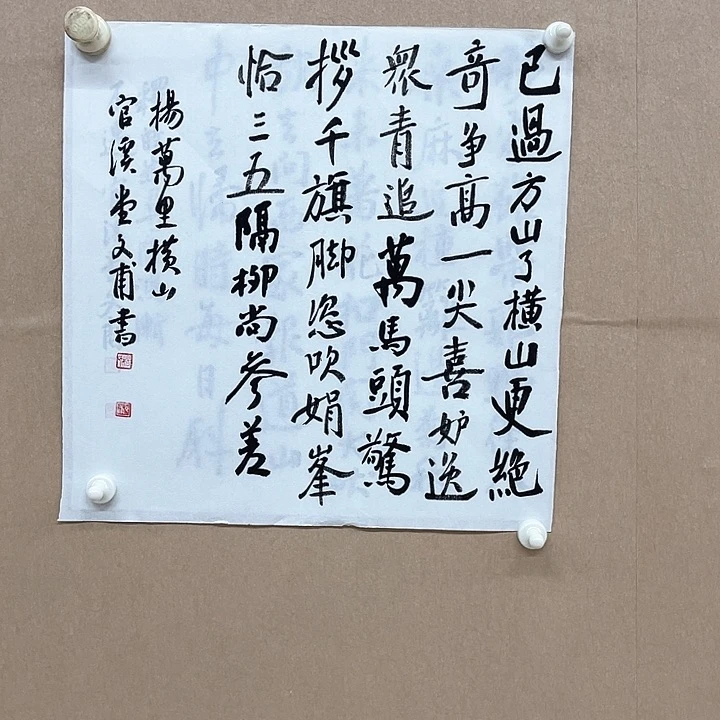 已過方山了橫山更絕
奇争高一尖喜妒逸
眾青追萬馬頭驚
拶千旗脚恣吹娟峯
恰三五隔柳尚參差
楊萬里橫山
官溪堂文甫書